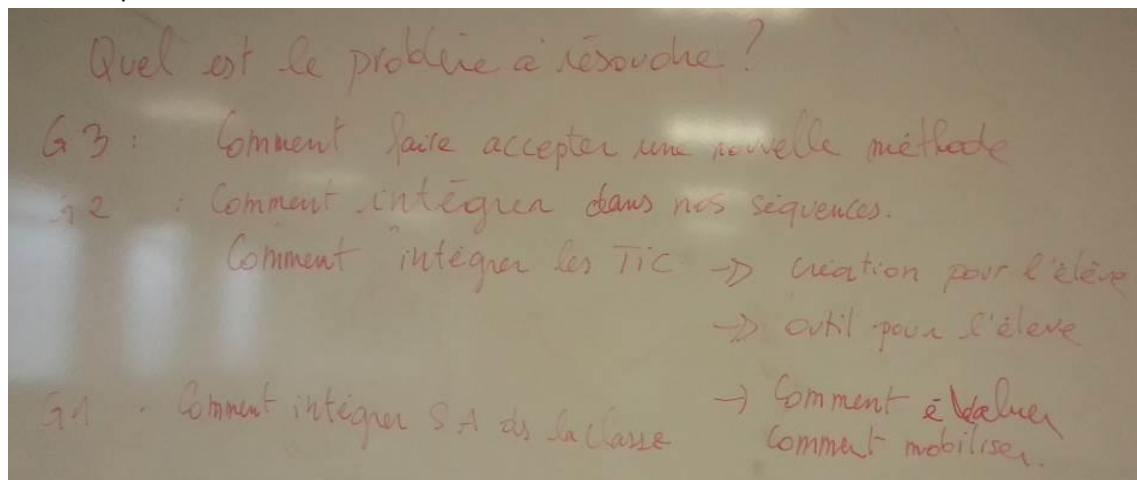 Quel est le problème à résoudre ?
G3 : Comment faire accepter une nouvelle méthode
G2 : Comment intégrer dans nos séquences.
Comment intégrer les TIC → création pour l'élève
→ outil pour l'élève
G1 . Comment intégrer SA ds la classe → Comment évaluer
Comment mobiliser.